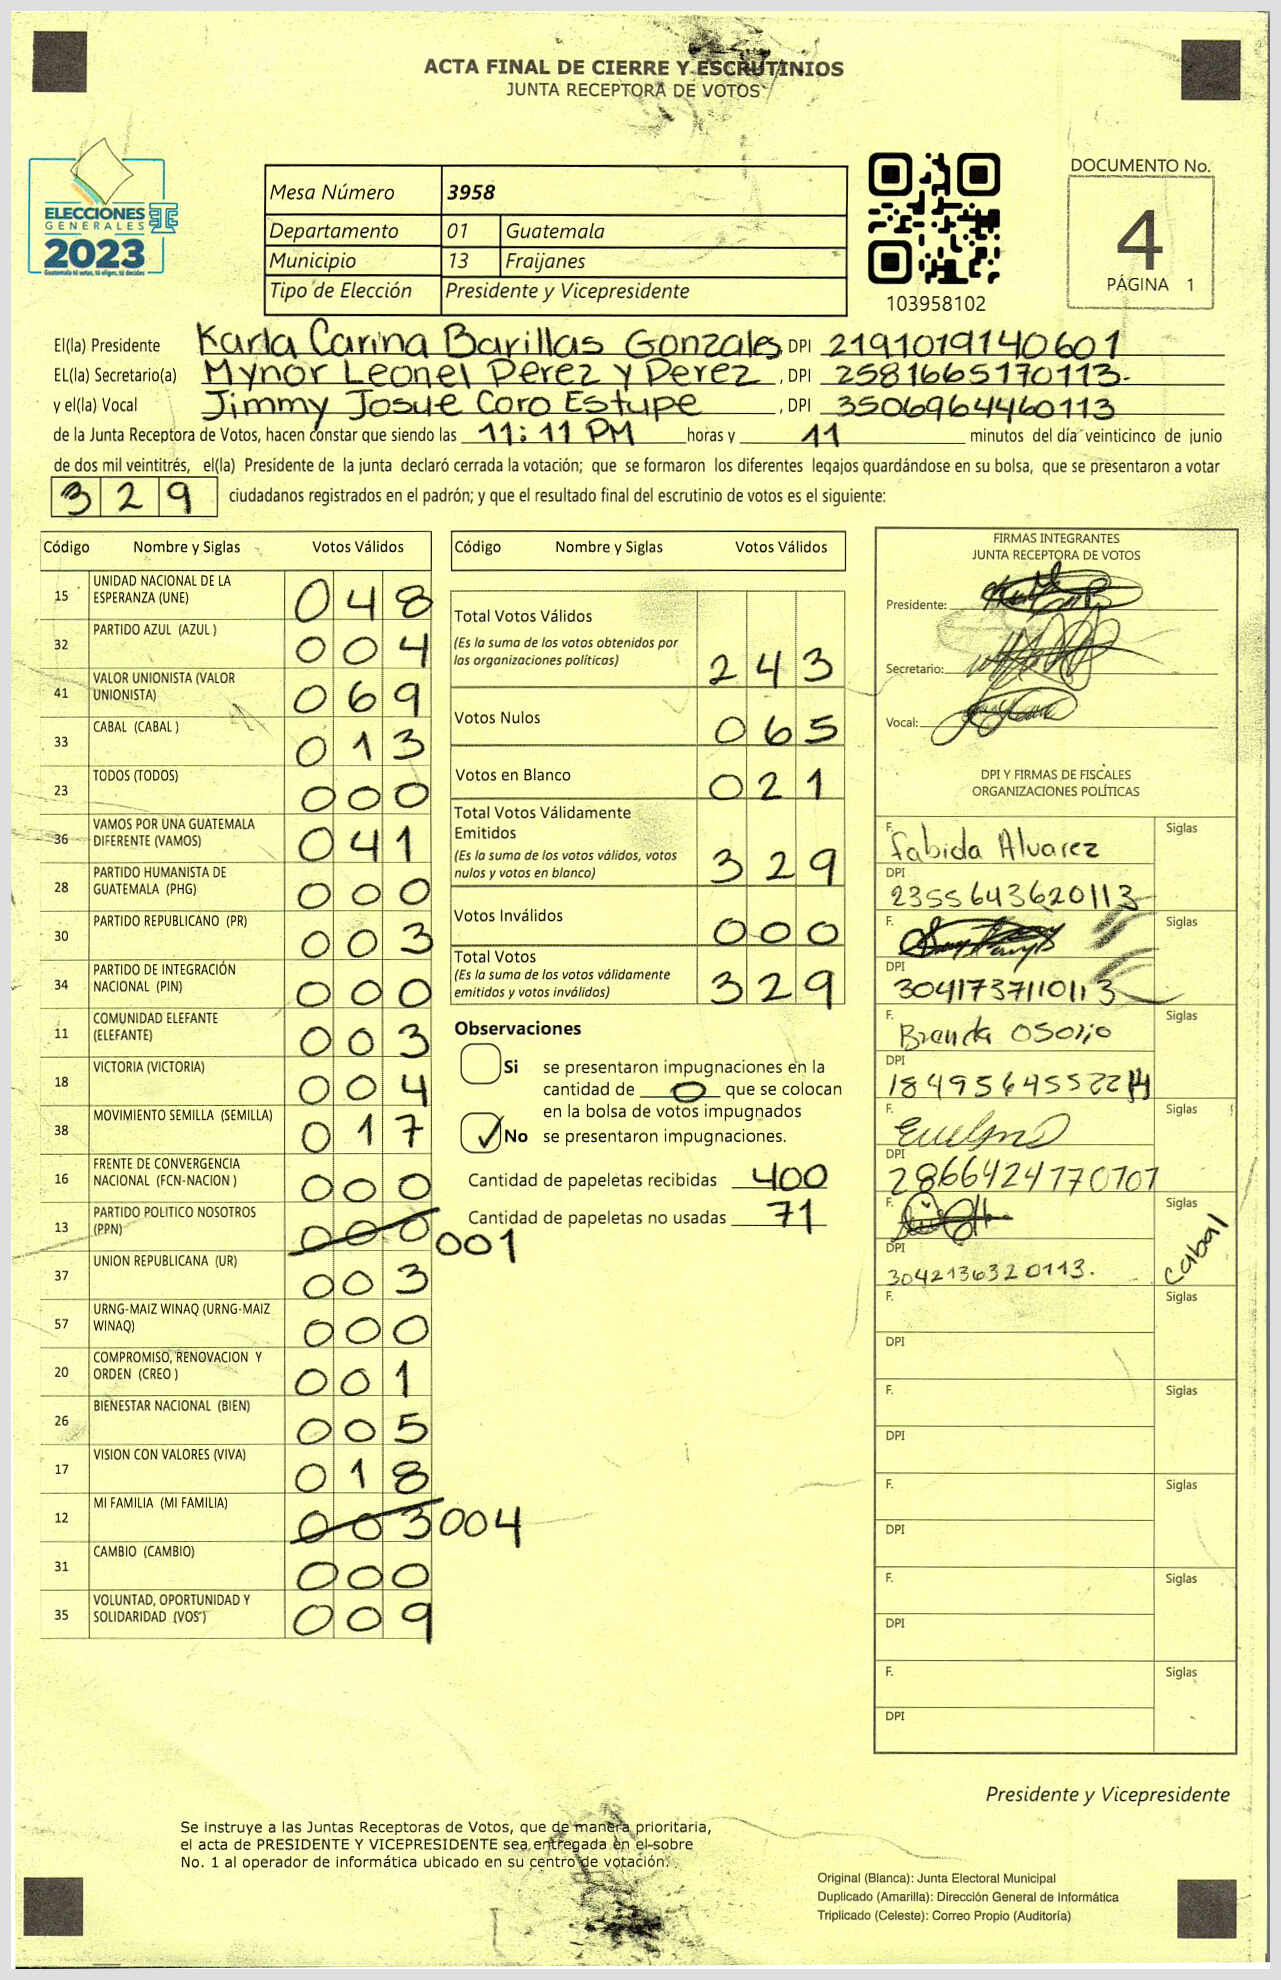 ACTA FINAL DE CIERRE Y ESCRUTINIOS
JUNTA RECEPTORA DE VOTOS
ELECCIONES
GENERALES
2023
Guatemala tú votas, tú eliges, tú decides
Mesa Número 3958
Departamento 01 Guatemala
Municipio 13 Fraijanes
Tipo de Elección Presidente y Vicepresidente
103958102
DOCUMENTO No.
4
PÁGINA 1
El(la) Presidente Karla Carina Barillas Gonzales, DPI 2191019140601
EL(la) Secretario(a) Mynor Leonel Perez y Perez, DPI 2581665170113.
y el(la) Vocal Jimmy Josue Coro Estupe, DPI 3506964460113
de la Junta Receptora de Votos, hacen constar que siendo las 11:11 PM horas y 11 minutos del día veinticinco de junio
de dos mil veintitrés, el(la) Presidente de la junta declaró cerrada la votación; que se formaron los diferentes legajos guardándose en su bolsa, que se presentaron a votar
329 ciudadanos registrados en el padrón; y que el resultado final del escrutinio de votos es el siguiente:
Código Nombre y Siglas Votos Válidos
15 UNIDAD NACIONAL DE LA ESPERANZA (UNE) 048
32 PARTIDO AZUL (AZUL ) 004
41 VALOR UNIONISTA (VALOR UNIONISTA) 069
33 CABAL (CABAL ) 013
23 TODOS (TODOS) 000
36 VAMOS POR UNA GUATEMALA DIFERENTE (VAMOS) 041
28 PARTIDO HUMANISTA DE GUATEMALA (PHG) 000
30 PARTIDO REPUBLICANO (PR) 003
34 PARTIDO DE INTEGRACIÓN NACIONAL (PIN) 000
11 COMUNIDAD ELEFANTE (ELEFANTE) 003
18 VICTORIA (VICTORIA) 004
38 MOVIMIENTO SEMILLA (SEMILLA) 017
16 FRENTE DE CONVERGENCIA NACIONAL (FCN-NACION ) 000
13 PARTIDO POLITICO NOSOTROS (PPN) 000 001
37 UNION REPUBLICANA (UR) 003
57 URNG-MAIZ WINAQ (URNG-MAIZ WINAQ) 000
20 COMPROMISO, RENOVACION Y ORDEN (CREO ) 001
26 BIENESTAR NACIONAL (BIEN) 005
17 VISION CON VALORES (VIVA) 018
12 MI FAMILIA (MI FAMILIA) 003 004
31 CAMBIO (CAMBIO) 000
35 VOLUNTAD, OPORTUNIDAD Y SOLIDARIDAD (VOS) 009
Código Nombre y Siglas Votos Válidos
Total Votos Válidos 243
(Es la suma de los votos obtenidos por
las organizaciones políticas)
Votos Nulos 065
Votos en Blanco 021
Total Votos Válidamente
Emitidos 329
(Es la suma de los votos válidos, votos
nulos y votos en blanco)
Votos Inválidos 000
Total Votos 329
(Es la suma de los votos válidamente
emitidos y votos inválidos)
Observaciones
Si se presentaron impugnaciones en la
cantidad de 0 que se colocan
en la bolsa de votos impugnados
No se presentaron impugnaciones.
Cantidad de papeletas recibidas 400
Cantidad de papeletas no usadas 71
FIRMAS INTEGRANTES
JUNTA RECEPTORA DE VOTOS
Presidente:
Secretario:
Vocal:
DPI Y FIRMAS DE FISCALES
ORGANIZACIONES POLÍTICAS
F. Fabida Alvarez Siglas
DPI 2355643620113
F. Siglas
DPI 3041737110113
F. Brenda Osorio Siglas
DPI
F. Siglas
DPI 2866424770101
F. Siglas cabal
DPI 3042136320113.
F. Siglas
DPI
F. Siglas
DPI
F. Siglas
DPI
F. Siglas
DPI
F. Siglas
DPI
Presidente y Vicepresidente
Se instruye a las Juntas Receptoras de Votos, que de manera prioritaria,
el acta de PRESIDENTE Y VICEPRESIDENTE sea entregada en el sobre
No. 1 al operador de informática ubicado en su centro de votación.
Original (Blanca): Junta Electoral Municipal
Duplicado (Amarilla): Dirección General de Informática
Triplicado (Celeste): Correo Propio (Auditoría)